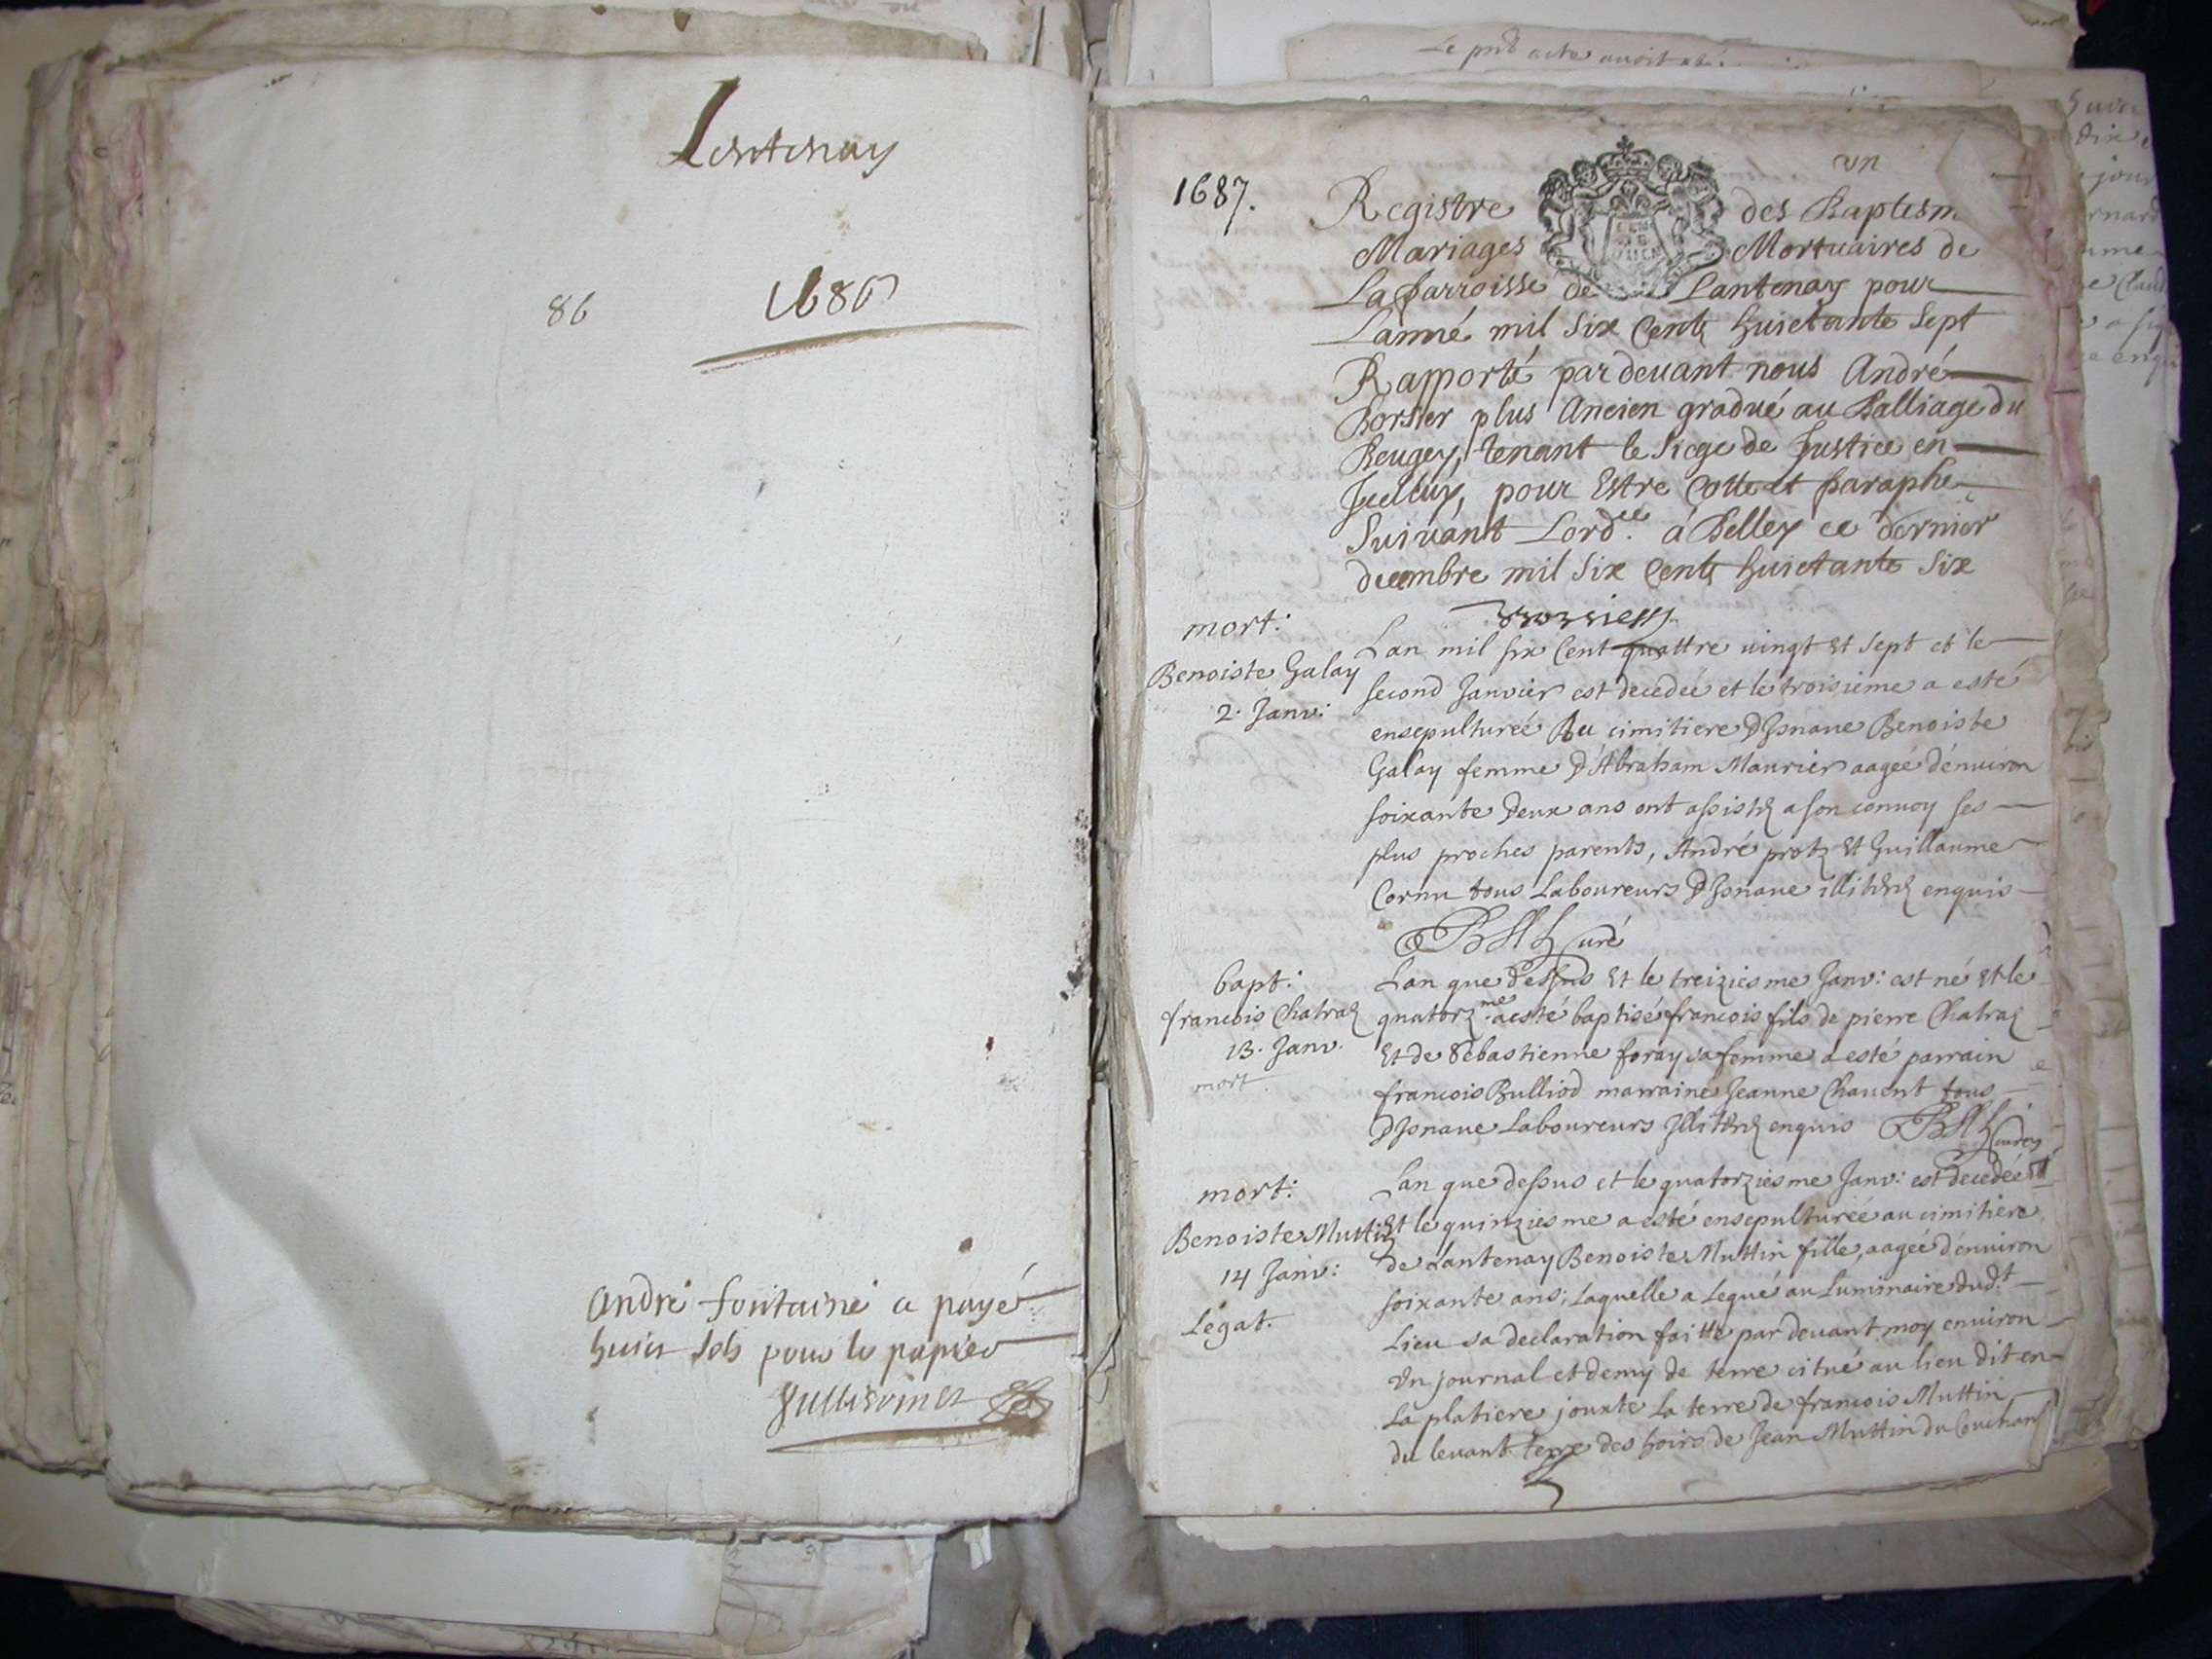 Lentenay
86
1686
André fontaine a payé
huict sols pour le papier
Le pnt acte avoit
1687.
un
Registre des Baptesm
Mariages Mortuaires de
La parroisse de Lantenay pour
Lanné mil Six Cents huictante Sept
Rapporté pardevant nous André
Borsier plus Ancien gradué au Balliage du
Beugey, tenant le Siege de Justice en
Jcelluy, pour Estre Cotte et paraphe
Suivant Lord.ce a Belley ce dernier
decembre mil Six Cents huictante Six
mort:
Benoiste Galay
2. Janv:
Lan mil six Cent quattre vingt et sept et le
second Janvier est decedée et le troisieme a esté
ensepulturée Au cimitiere D'Jsnaue Benoiste
Galay femme D'Abraham Maurier aagée d'enuiron
soixante deux ans ont assistez a son conuoy ses
plus proches parents, André protz et Guillaume
Cornu tous Laboureurs D'Jsnaue illiterez enquis
Curé
bapt:
francois Chatraz
13. Janv.
mort.
Lan que dessus et le treiziesme Janv: est né et le
quatorz.me a esté baptisé francois fils de pierre Chatraz
Et de Sebastienne foray sa femme a esté parrain
francois Bulliod marraine Jeanne Chauent tous
D'Jsnaue Laboureurs Jlliterez enquis
mort:
Benoiste Muttin
14 Janv:
Légat.
Lan que dessus et le quatorziesme Janv: est decedée
Et le quinziesme a esté ensepulturée au cimitiere
de Lantenay Benoiste Muttin fille, aagée d'enuiron
soixante ans, Laquelle a Legué au Luminaire dud.t
Lieu sa declaration faitte par deuant moy enuiron
un journal et demy de terre citué au lieu dit en
La platiere jouxte La terre de francois Muttin
du leuant terre des hoirs de Jean Muttin du Couchant